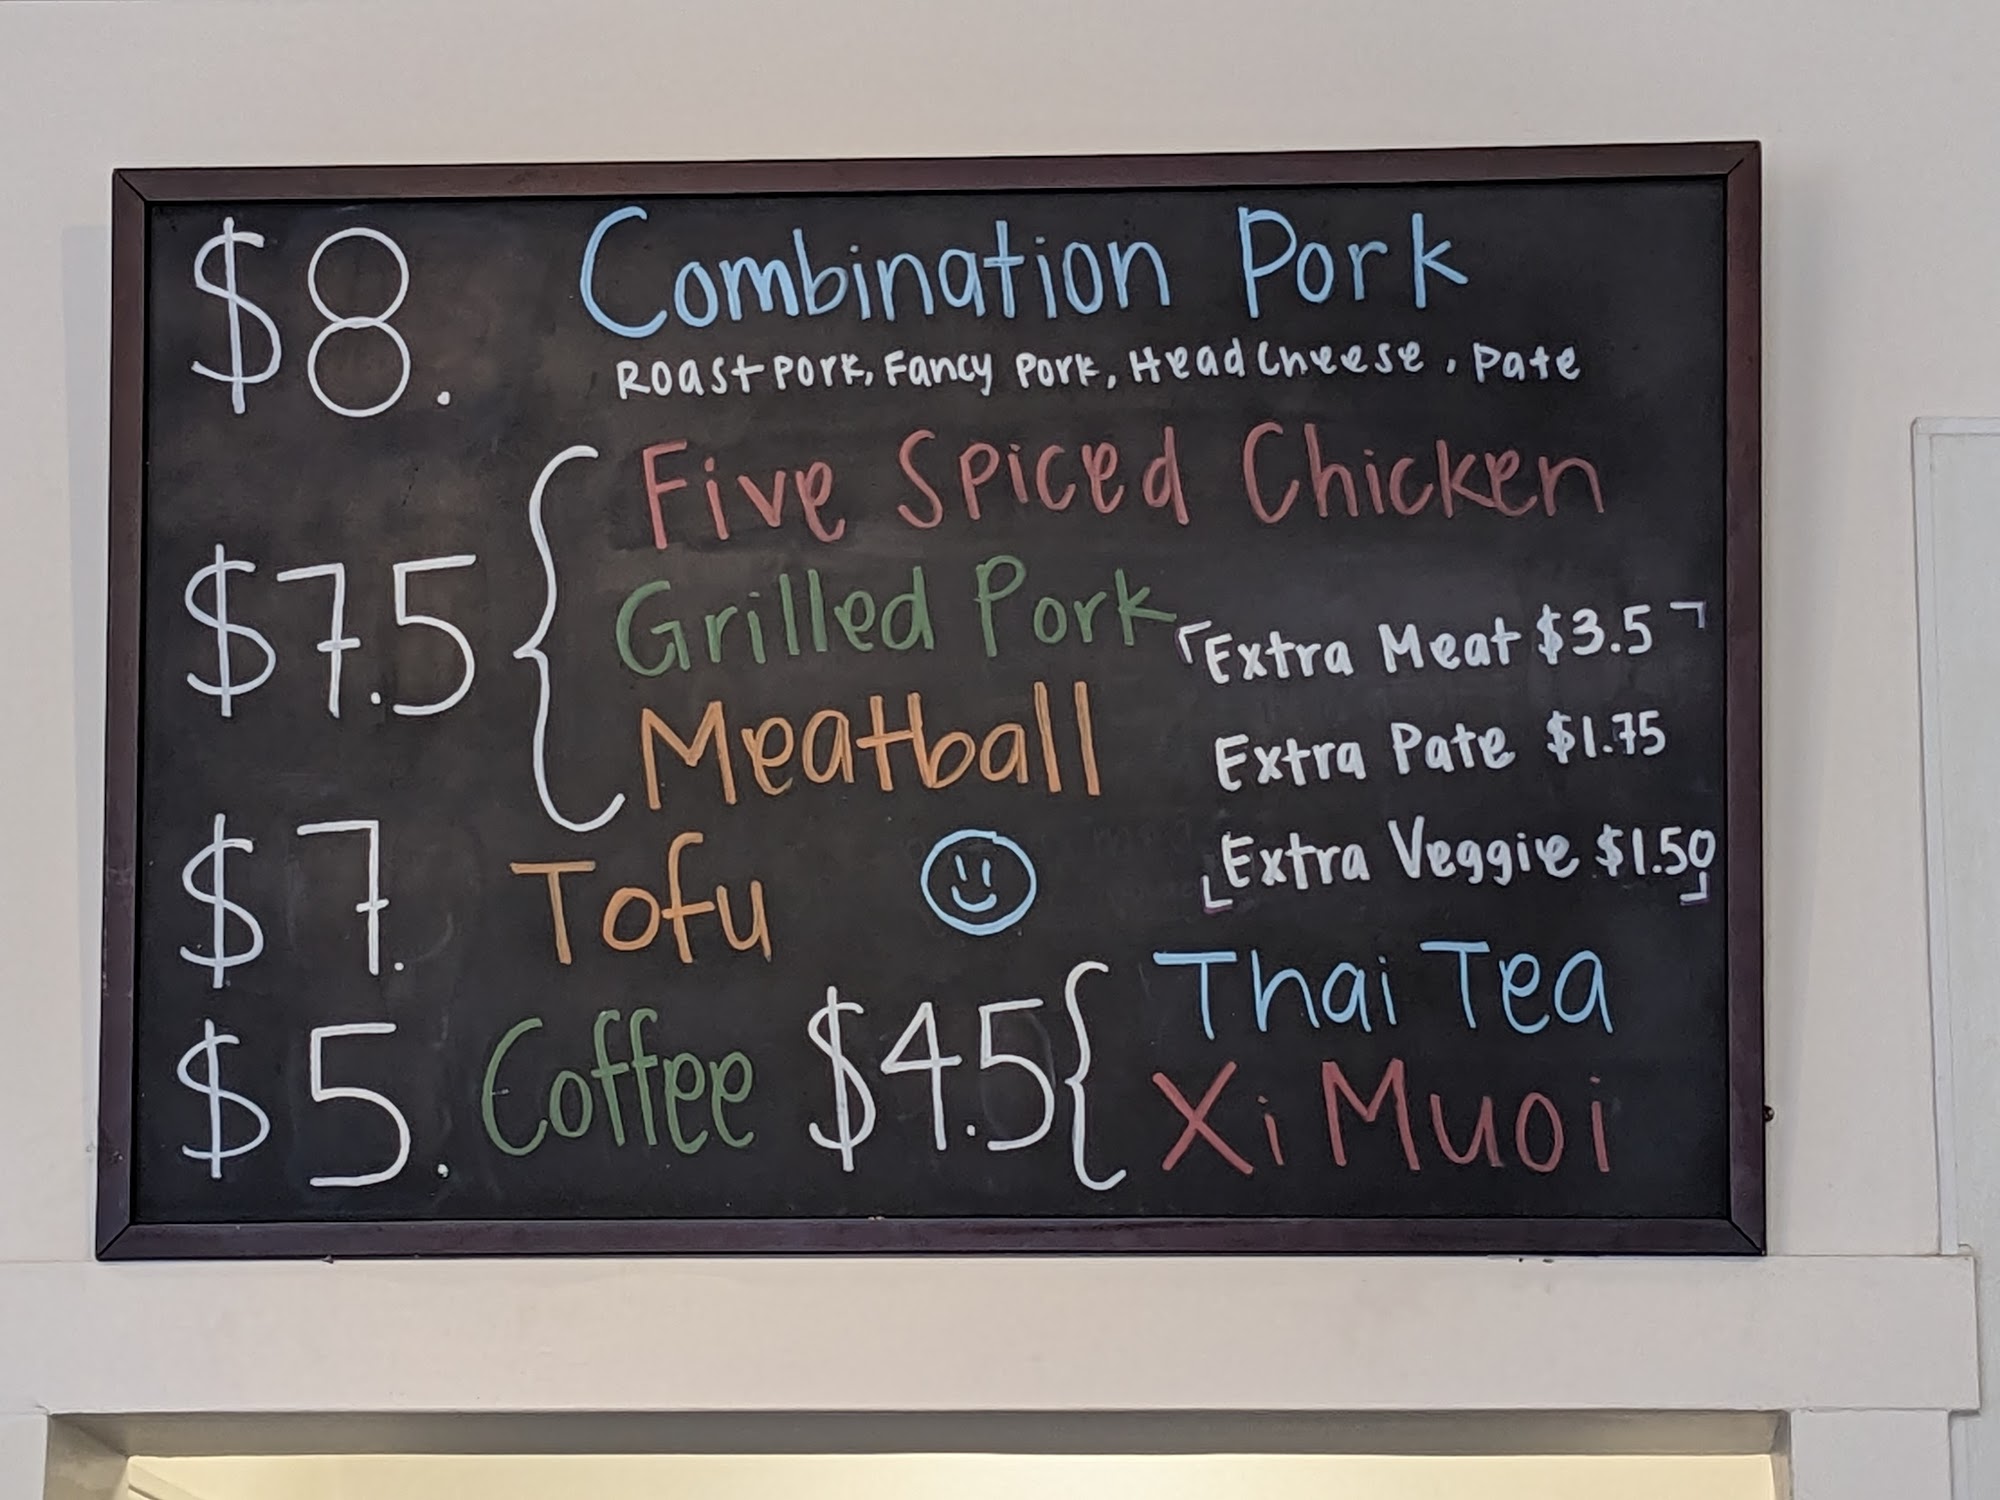 $8. Combination Pork
Roast Pork, Fancy Pork, Head Cheese, Pate
$7.5 { Five Spiced Chicken
Grilled Pork
Meatball
「Extra Meat $3.5 ㄱ
Extra Pate $1.75
Extra Veggie $1.50
$7. Tofu
$5. Coffee
$4.5 { Thai Tea
Xi Muoi